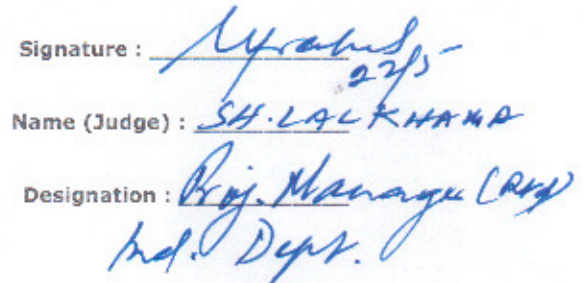 Signature :
22/5
Name (Judge) : SH. LALKHAMA
Designation : Proj. Manager (Rtd)
Ind. Dept.